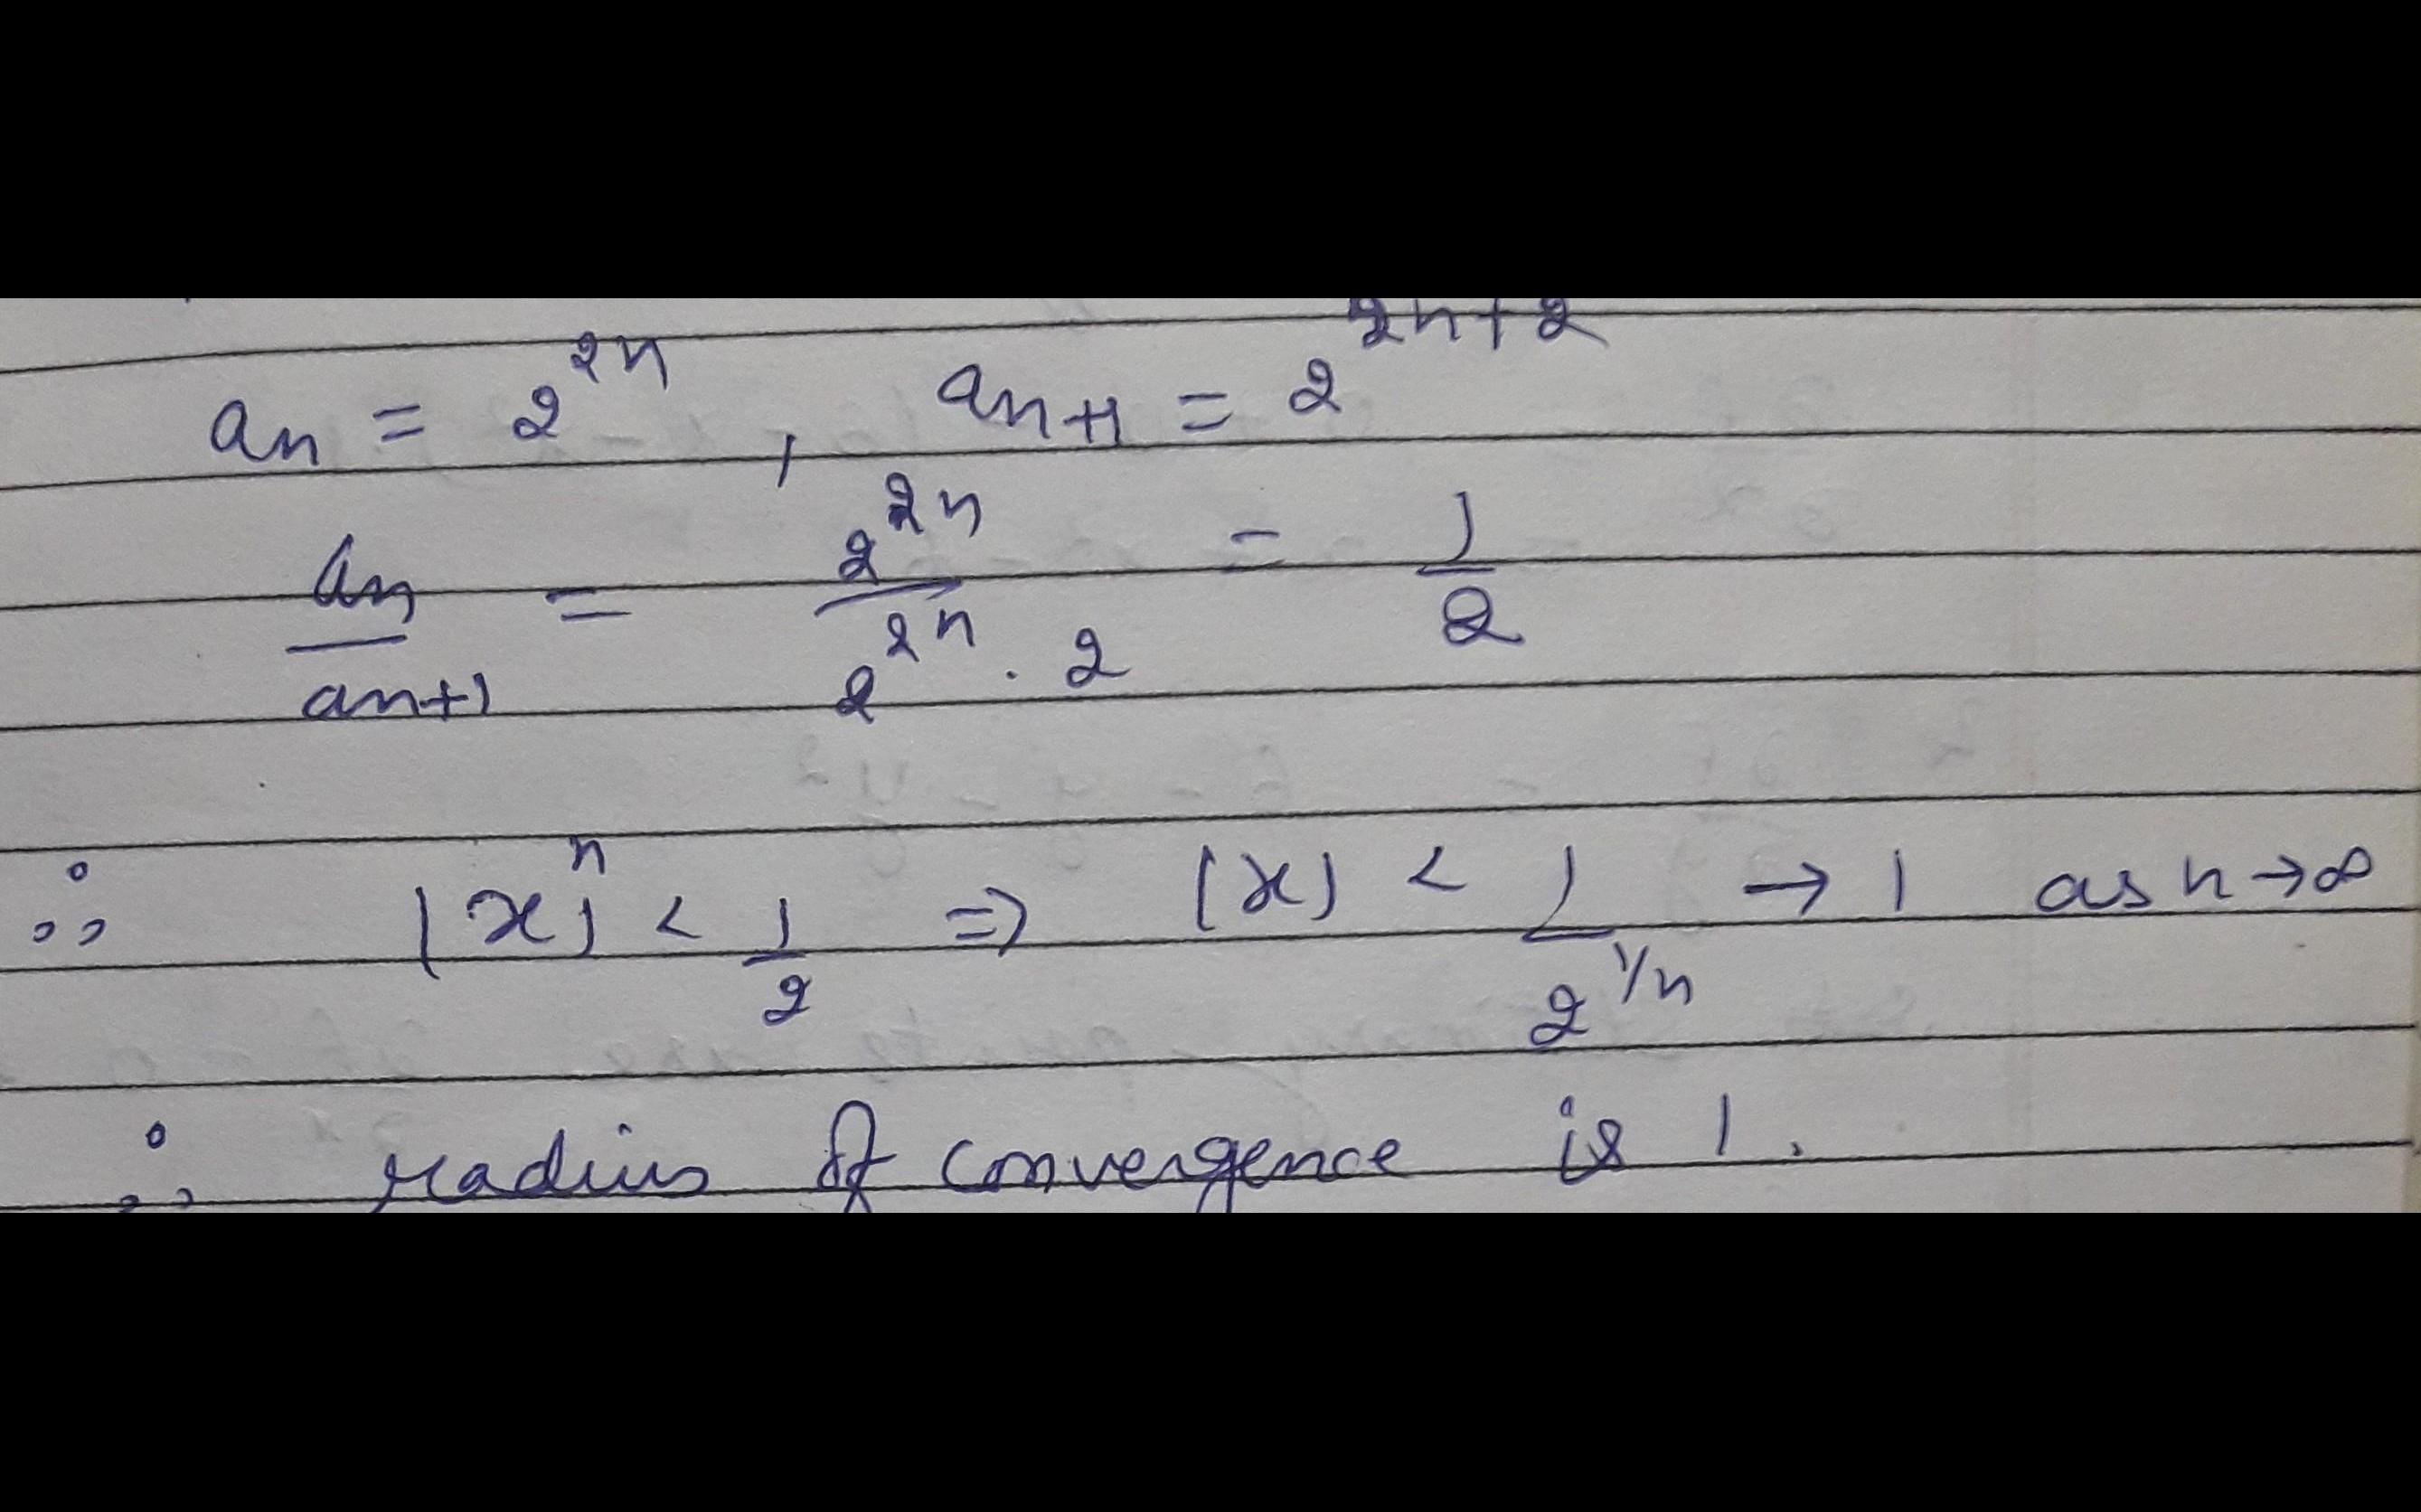 an = 2^{2n} , an+1 = 2^{2n+2}
\frac{an}{an+1} = \frac{2^{2n}}{2^{2n} . 2} = \frac{1}{2}
∴ |x|^n < \frac{1}{2} ⇒ |x| < \frac{1}{2^{1/n}} → 1 as n → ∞
∴ radius of convergence is 1.